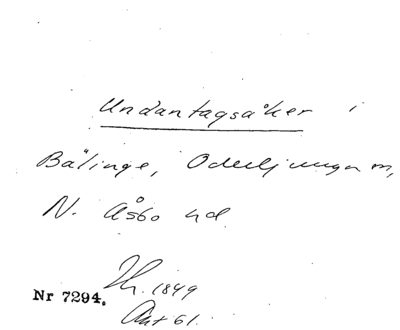 Undantagsåker i
Bälinge, Oderljunga m,
N. Åsbo hd.
Th. 1849
Nr 7294.
Akt 61.